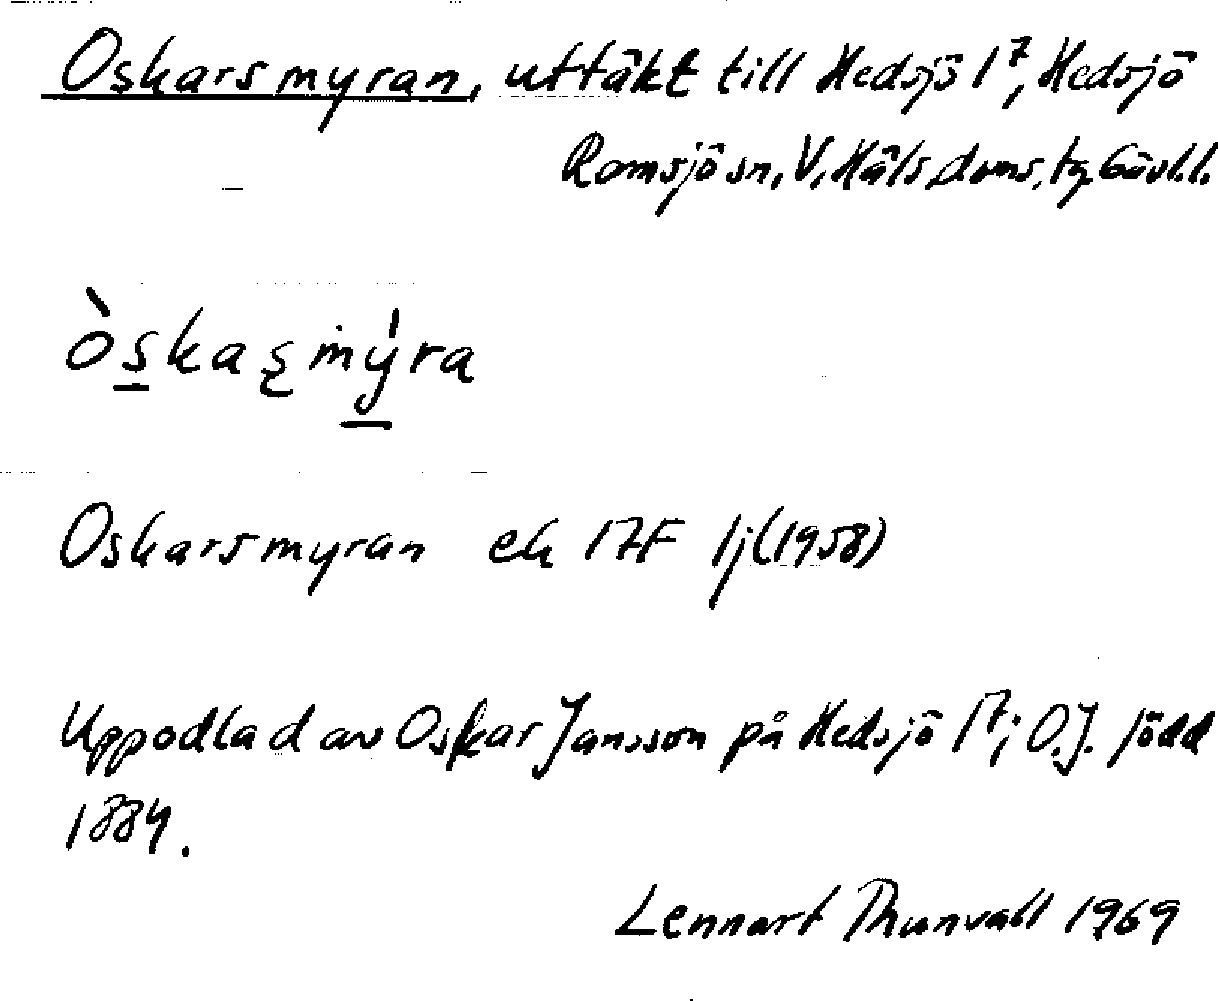 Oskarsmyran, uttäkt till Hedsjö 1⁷, Hedsjö
Ramsjö sn, V. Häls. doms. tg. Gävl. l.
òskaʂmýra
Oskarsmyran ek 17F 1j (1958)
Uppodlad av Oskar Jansson på Hedsjö 1⁷; O.J. född
1884.
Lennart Thunvall 1969